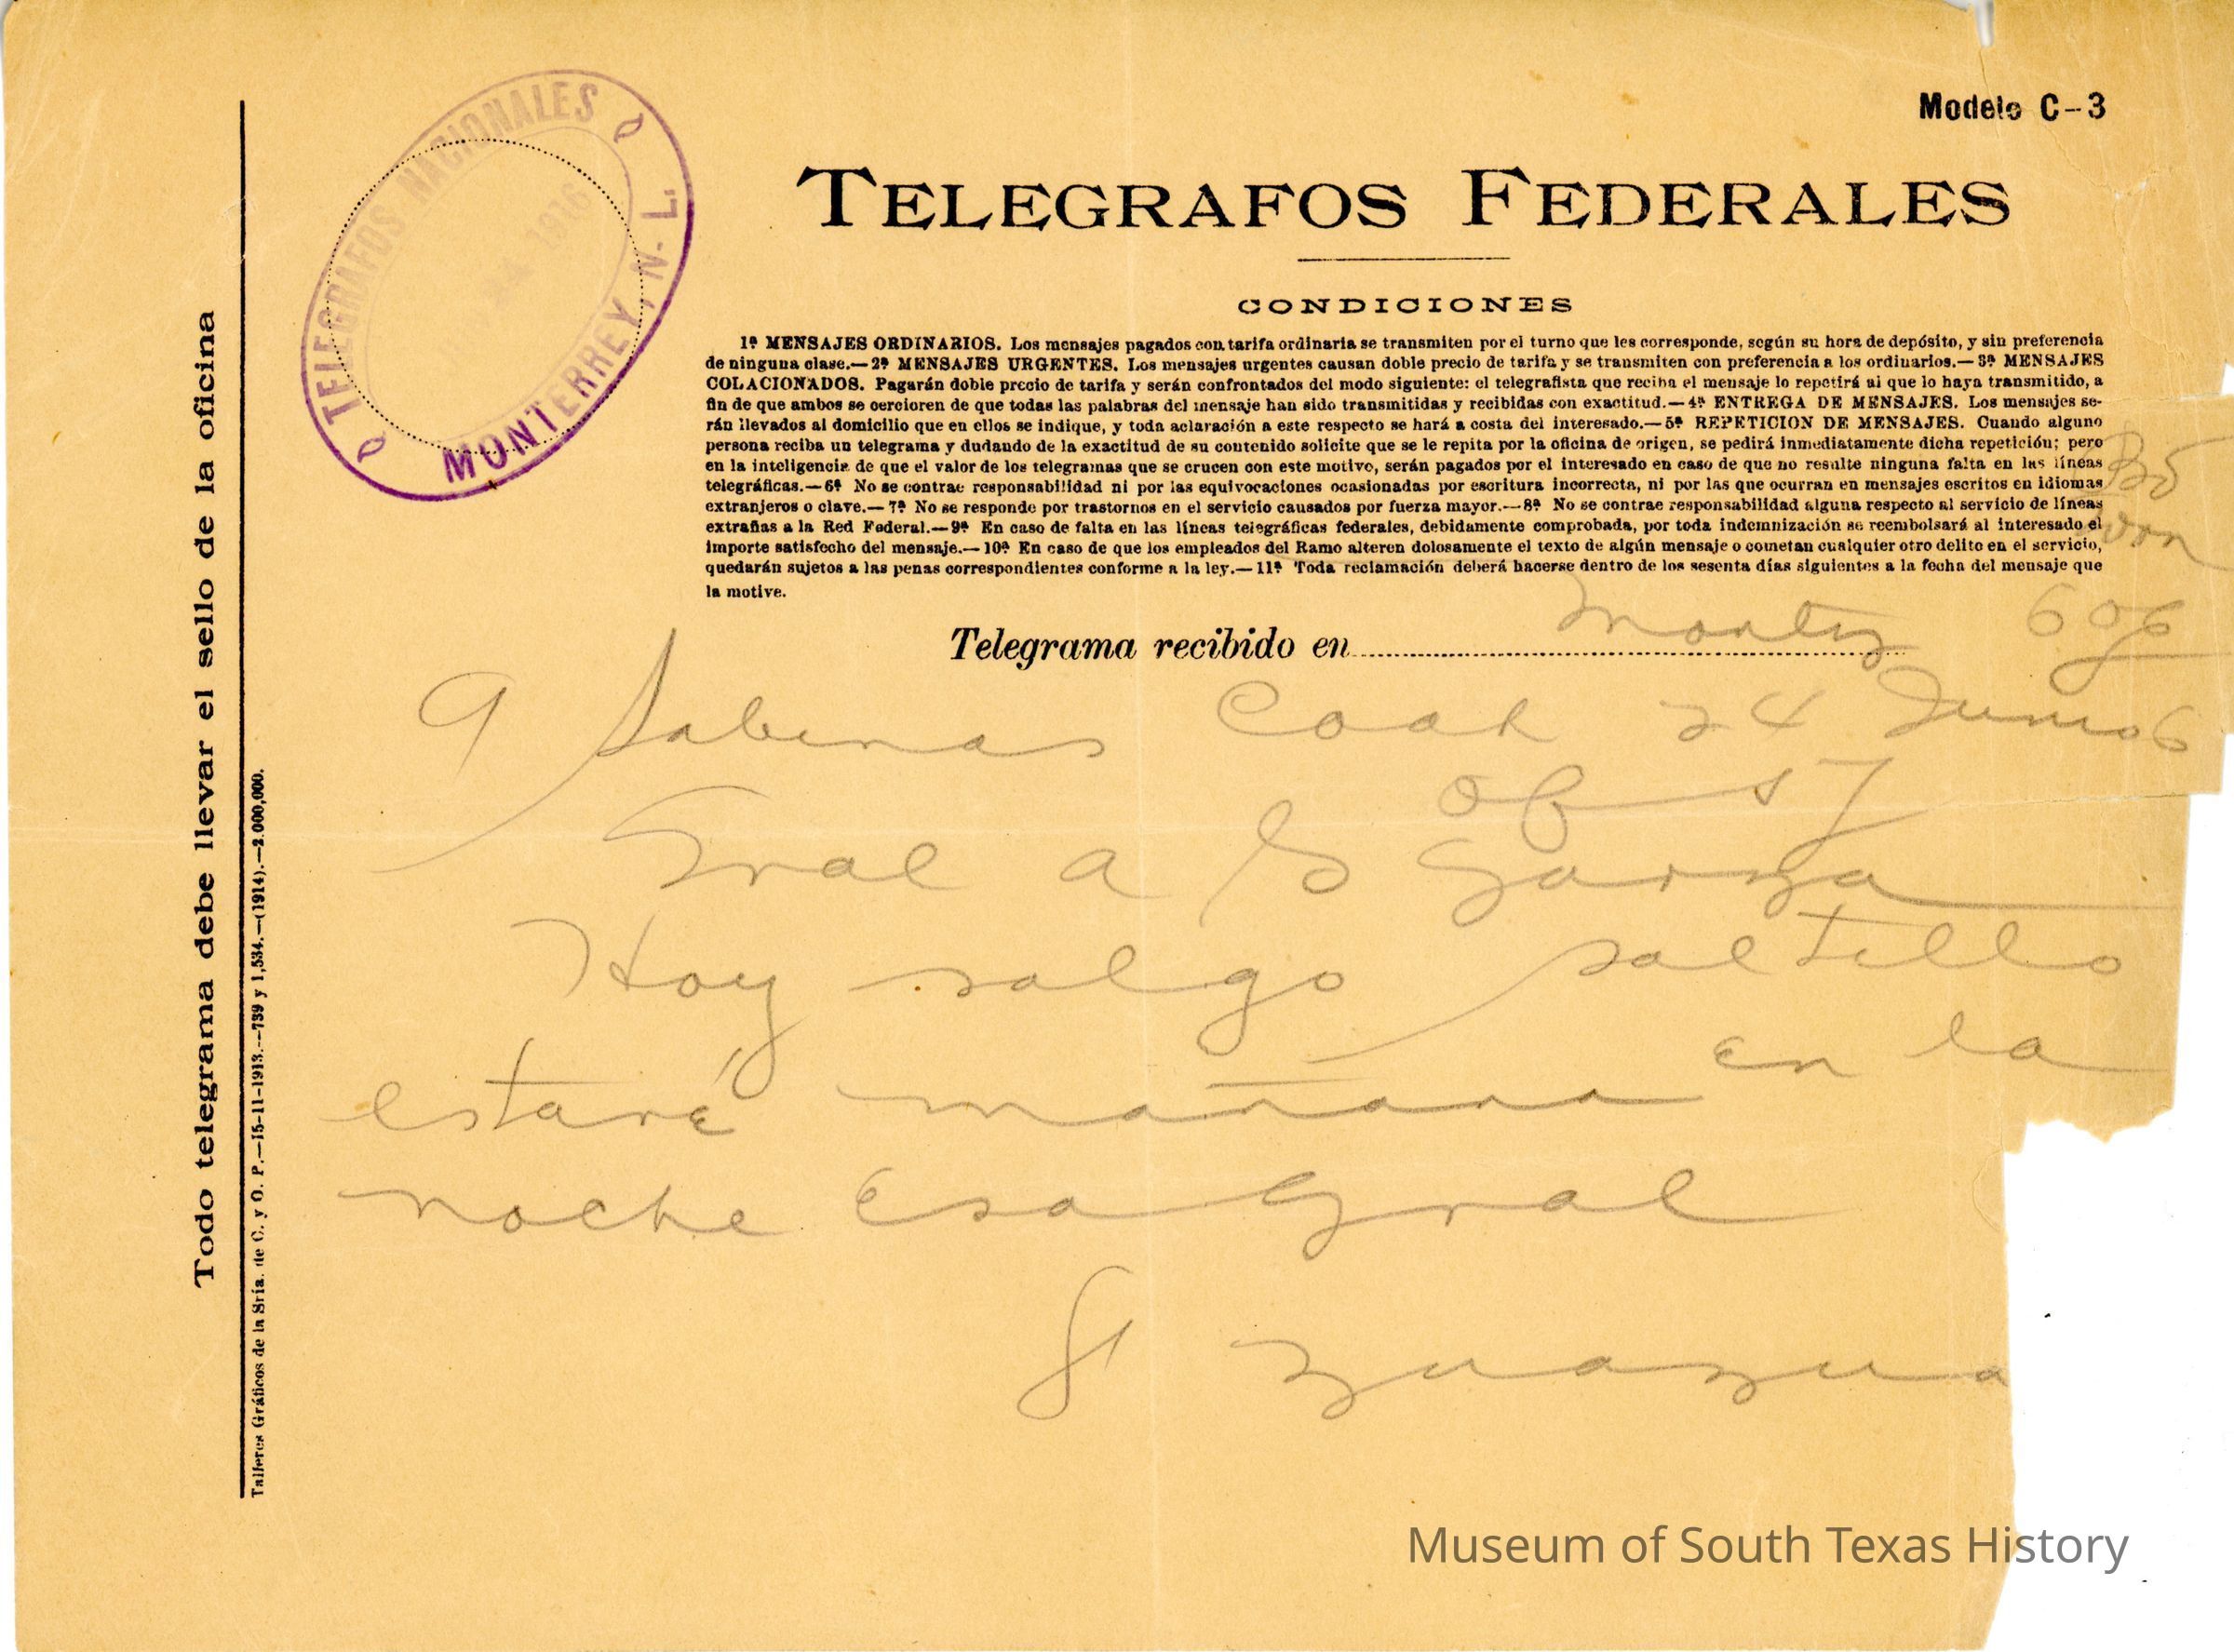 Modelo C-3
TELEGRAFOS FEDERALES
CONDICIONES
1ª MENSAJES ORDINARIOS. Los mensajes pagados con tarifa ordinaria se transmiten por el turno que les corresponde, según su hora de depósito, y sin preferencia
de ninguna clase.—2ª MENSAJES URGENTES. Los mensajes urgentes causan doble precio de tarifa y se transmiten con preferencia a los ordinarios.—3ª MENSAJES
COLACIONADOS. Pagarán doble precio de tarifa y serán confrontados del modo siguiente: el telegrafista que reciba el mensaje lo repetirá al que lo haya transmitido, a
fin de que ambos se cercioren de que todas las palabras del mensaje han sido transmitidas y recibidas con exactitud.—4ª ENTREGA DE MENSAJES. Los mensajes se-
rán llevados al domicilio que en ellos se indique, y toda aclaración a este respecto se hará a costa del interesado.—5ª REPETICION DE MENSAJES. Cuando alguno
persona reciba un telegrama y dudando de la exactitud de su contenido solicite que se le repita por la oficina de origen, se pedirá inmediatamente dicha repetición; pero
en la inteligencia de que el valor de los telegramas que se crucen con este motivo, serán pagados por el interesado en caso de que no resulte ninguna falta en las líneas
telegráficas.—6ª No se contrae responsabilidad ni por las equivocaciones ocasionadas por escritura incorrecta, ni por las que ocurran en mensajes escritos en idiomas
extranjeros o clave.—7ª No se responde por trastornos en el servicio causados por fuerza mayor.—8ª No se contrae responsabilidad alguna respecto al servicio de líneas
extrañas a la Red Federal.—9ª En caso de falta en las líneas telegráficas federales, debidamente comprobada, por toda indemnización se reembolsará al interesado el
importe satisfecho del mensaje.—10ª En caso de que los empleados del Ramo alteren dolosamente el texto de algún mensaje o cometan cualquier otro delito en el servicio,
quedarán sujetos a las penas correspondientes conforme a la ley.—11ª Toda reclamación deberá hacerse dentro de los sesenta días siguientes a la fecha del mensaje que
la motive.
Telegrama recibido en Montey
9 Sabinas Coah 24 Junio 6
of s 7
Gral a S Garza
Hoy salgo saltillo
estaré mañana en la
noche Esa Gral
F Zuazua
TELEGRAFOS NACIONALES
1916
MONTERREY, N. L.
Todo telegrama debe llevar el sello de la oficina
Talleres Gráficos de la Sria. de C. y O. P.—15-11-1913.—739 y 1,534.—(1914).—2.000,000.
Museum of South Texas History